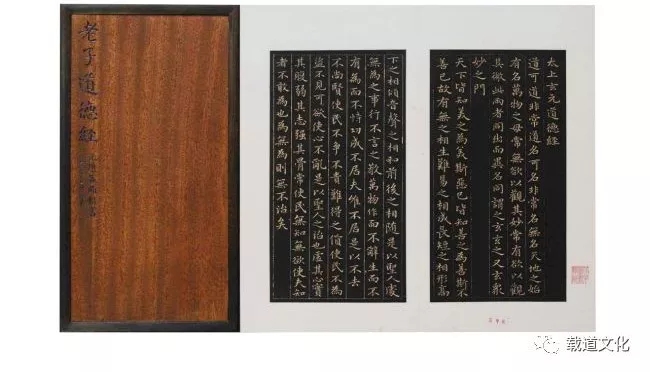 老子道德經
太上玄元道德經
道可道非常道名可名非常名無名天地之始
有名萬物之母常無欲以觀其妙常有欲以觀
其徼此兩者同出而異名同謂之玄玄之又玄衆
妙之門
天下皆知美之為美斯惡已皆知善之為善斯不
善已故有無之相生難易之相成長短之相形高
下之相傾音聲之相和前後之相随是以聖人處
無為之事行不言之教萬物作而不辭生而不
有為而不恃功成不居夫唯不居是以不去
不尚賢使民不爭不貴難得之貨使民不為
盜不見可欲使心不亂是以聖人之治也虛其心實
其腹弱其志强其骨常使民無知無欲使夫知
者不敢為也為無為則無不治矣
载道文化